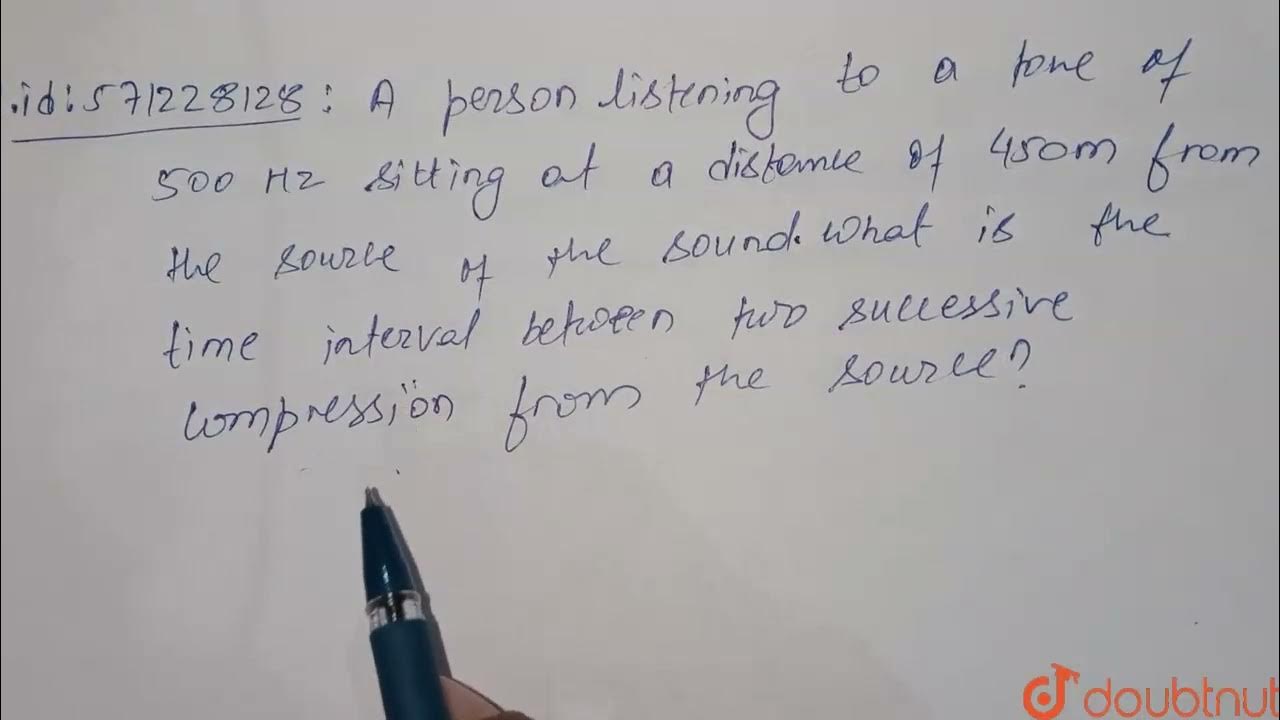 .id:571228128: A person listening to a tone of
500 Hz sitting at a distance of 450m from
the source of the sound. What is the
time interval between two successive
compression from the source?
doubtnut